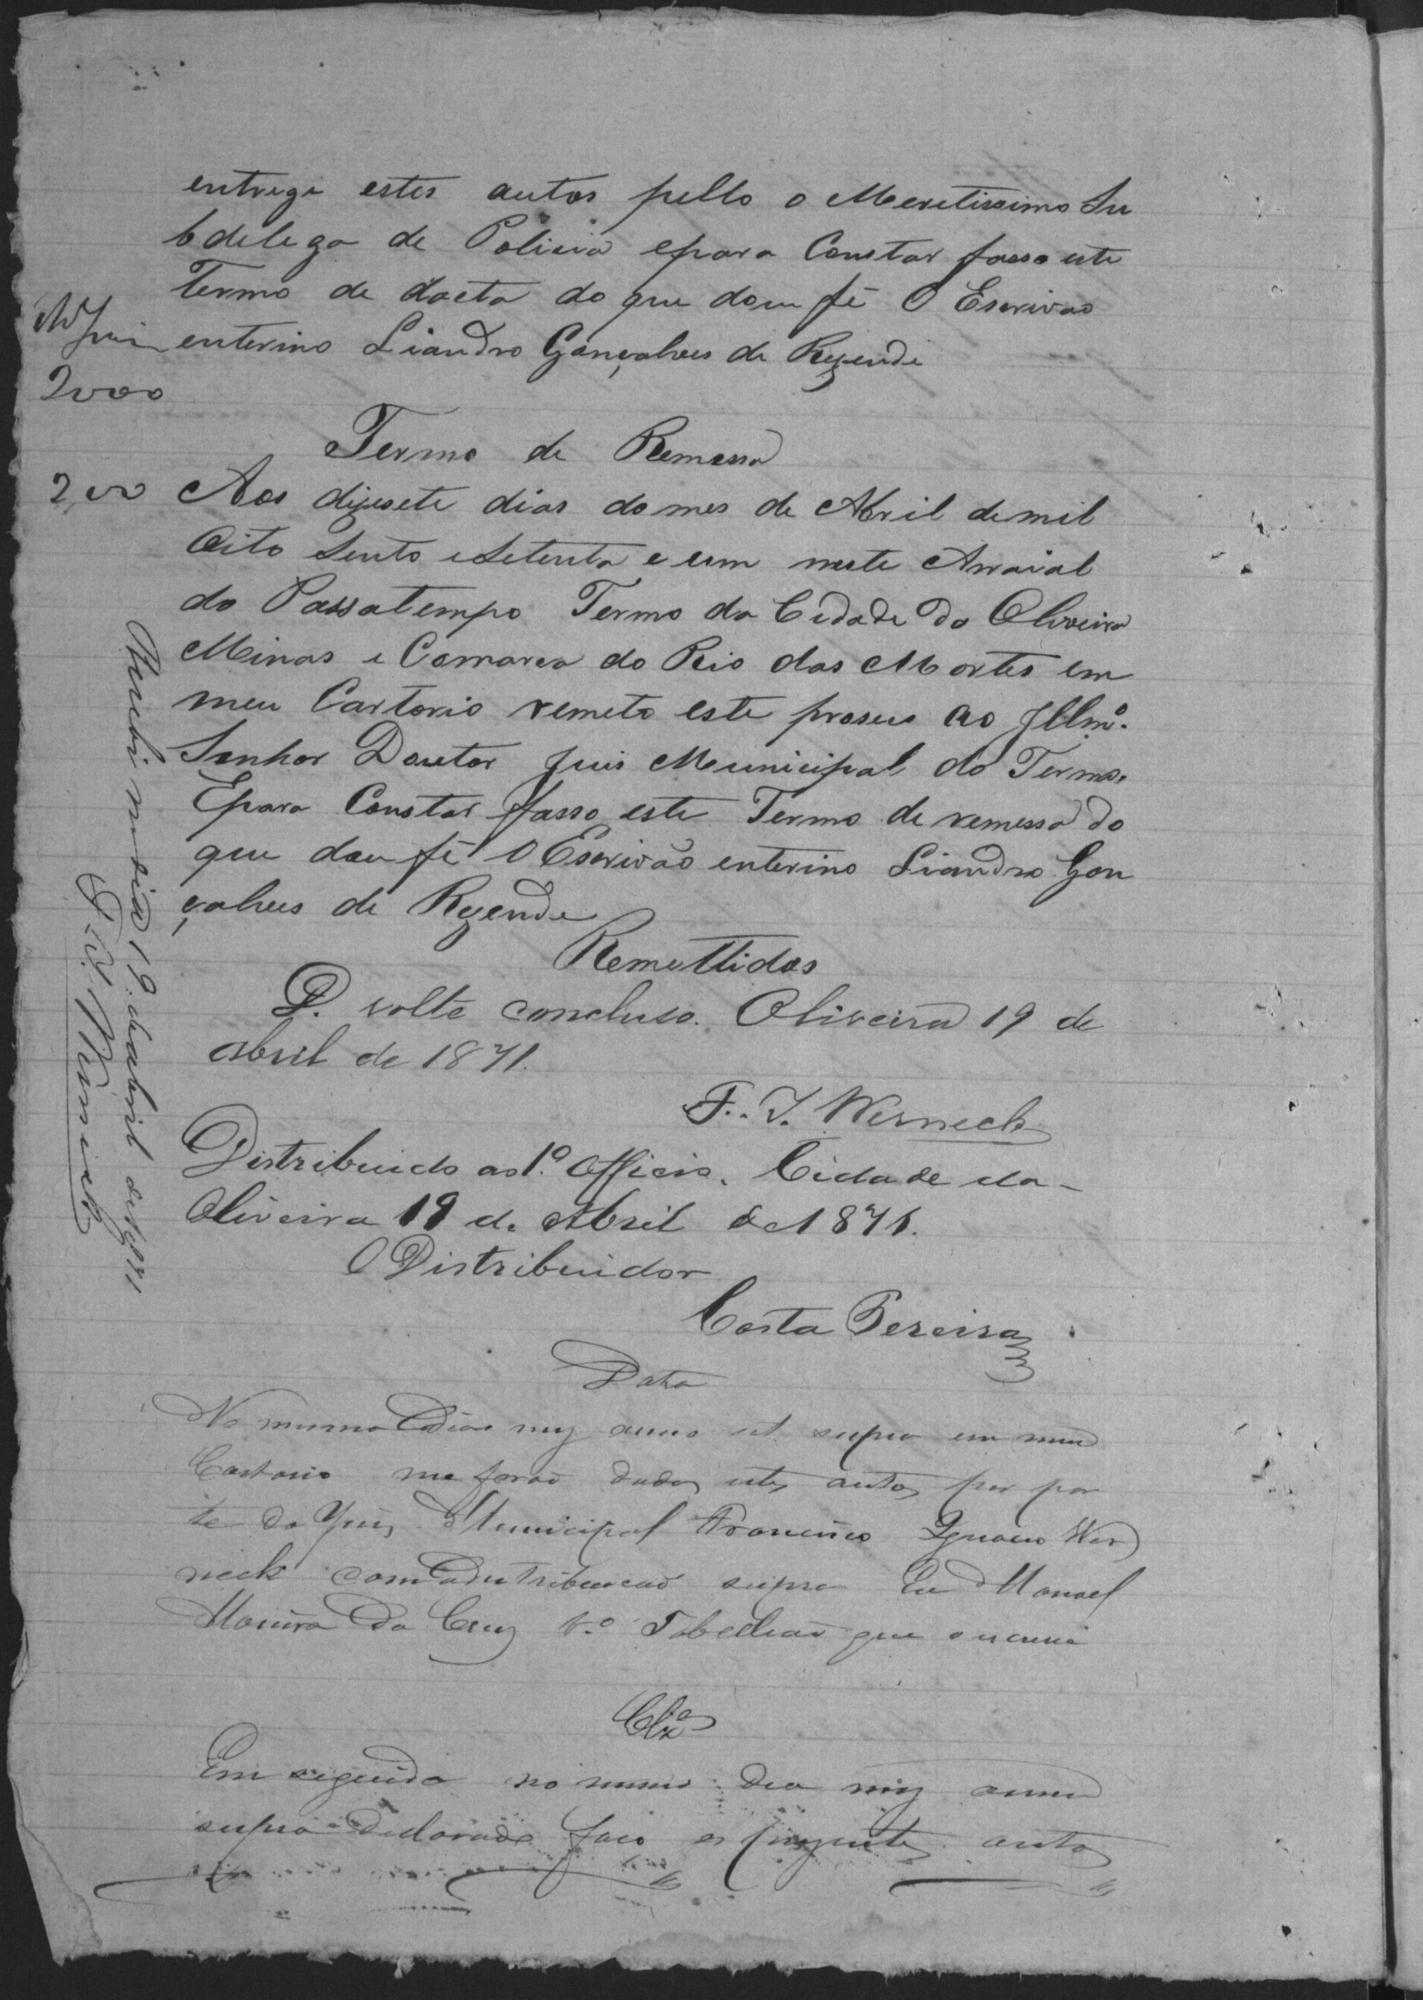 entrege estes autos pello o Meretissimo Su
bdelego de Policia epara Constar fasso este
Termo de dacta do que dou fé O Escrivao
enterino Liandro Gonçalves de Rezende
2000
Termo de Remessa
200
Aos dizesete dias do mes de Abril de mil
Oito Sento e Setenta e um neste Arraial
do Passatempo Termo da Cidade da Oliveira
Minas e Comarca do Rio das Mortes em
meu Cartorio remeto este proseço ao Illmº.
Senhor Doutor Juis Municipal do Termo.
Epara Constar fasso este Termo de remessa do
que dou fé O Escrivão enterino Liandro Gon
çalves de Rezende
Remettidos
D. volte concluso. Oliveira 19 de
abril de 1871.
F. I. Werneck
Distribuido ao 1º. Officio. Cidade da
Oliveira 19 de Abril de 1871.
O Distribuidor
Costa Pereira
Data
No mesmo dia mez anno ut supra em meu
Cartorio me forão dados estes autos por par
te do Juiz Municipal Francisco Ignacio Wer
neck com a distribuicão supra Eu Manoel
da Cruz 1º. Tabellião que o escrevi
Clzº
Em seguida no mesmo dia mez anno
supra declarado faço os presentes autos
Recebi no dia 19 de abril de 1871
F. I. Werneck